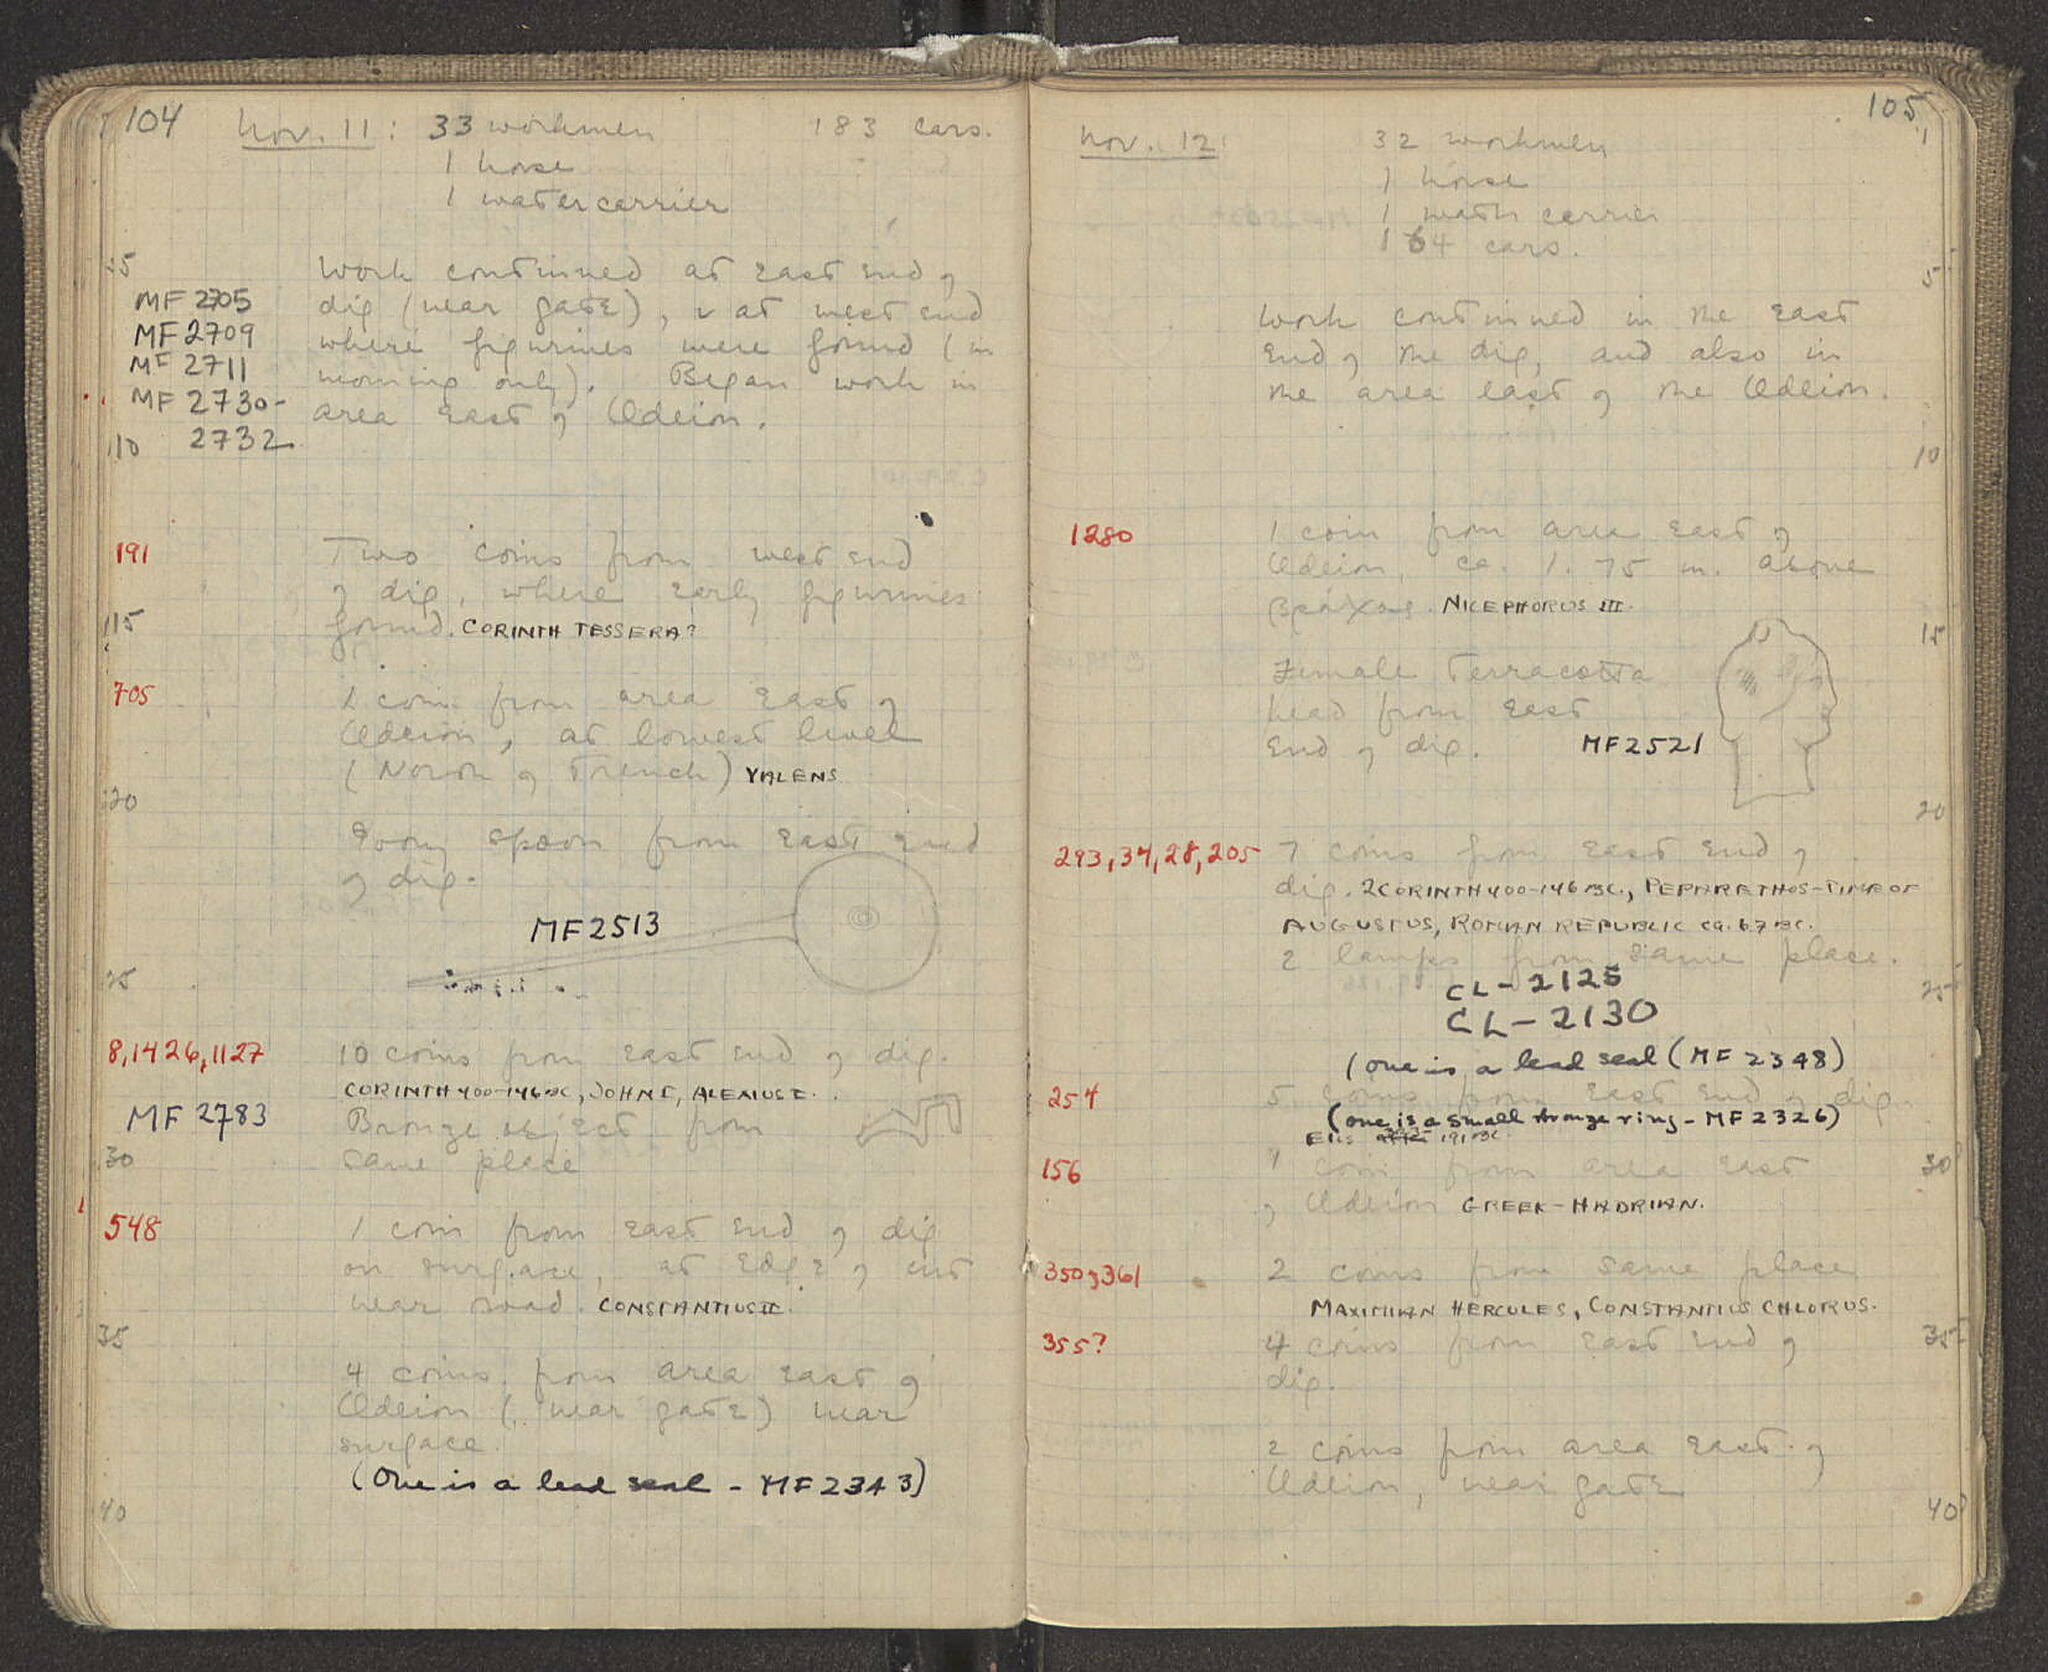 104
Nov. 11: 33 workmen 183 cars.
1 horse
1 water carrier
5 Work continued at east end of
MF 2705 dig (near gate), & at west end
MF 2709 where figurines were found (in
MF 2711 morning only). Began work in
MF 2730- area east of Odeion.
10 2732
191 Two coins from west end
of dig, where early figurines
15 found. CORINTH TESSERA?
705 1 coin from area east of
Odeion, at lowest level
(North of trench) VALENS
20
Ivory spoon from east end
of dig.
MF2513
25
8,1426,1127 10 coins from east end of dig.
CORINTH 400-146 BC, JOHN I, ALEXIUS I.
MF 2783 Bronze object from
30 same place
548 1 coin from east end of dig
on surface, at edge of cut
near road. CONSTANTIUS II.
35
4 coins from area east of
Odeion (near gate) near
surface.
(One is a lead seal - MF2343)
40
105
Nov. 12 32 workmen 1
1 horse
1 water carrier
164 cars.
5
Work continued in the east
end of the dig, and also in
the area east of the Odeion.
10
1280 1 coin from area east of
Odeion, ca. 1.75 m. above
βράχος. NICEPHORUS III.
15
Female terracotta
head from east
end of dig. MF2521
20
293,34,28,205 7 coins from east end of
dig. 2 CORINTH 400-146 BC., PEPARETHOS-TIME OF
AUGUSTUS, ROMAN REPUBLIC ca. 67 BC.
2 lamps from same place.
CL-2125
25
CL-2130
(One is a lead seal (MF 2348)
254 5 coins from east end of dig.
(one is a small bronze ring - MF2326)
ELIS 191 BC
156 1 coin from area east 30
of Odeion GREEK-HADRIAN.
350,361 2 coins from same place
MAXIMIAN HERCULES, CONSTANTIUS CHLORUS.
355? 4 coins from east end of 35
dig.
2 coins from area east of
Odeion, near gate
40